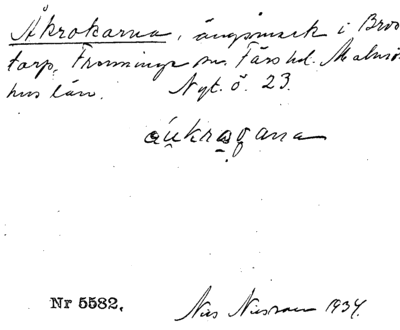 Åkrokarna, ängsmark i Bros
tarp, Tranninge sn. Färs hd. Malmö
hus län. Nyt. ö. 23.
áu̯krogana
Nr 5582. Nils Nilsson 1934.